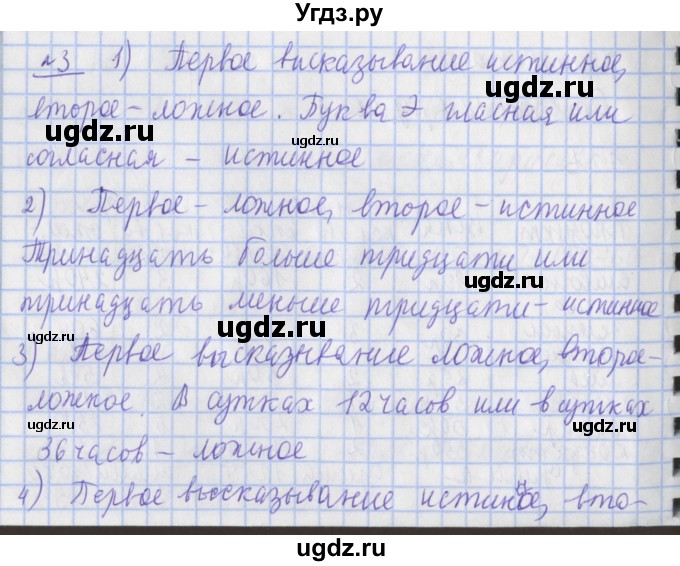 Угдз.ру
№3 1) Первое высказывание истинное,
второе - ложное. Буква Э гласная или
согласная - истинное
2) Первое - ложное, второе - истинное
Тринадцать больше тридцати или
тринадцать меньше тридцати - истинное
3) Первое высказывание ложное, второе -
ложное. В сутках 12 часов или в сутках
36 часов - ложное
4) Первое высказывание истинное, вто-
ugdz.ru
ugdz.ru
ugdz.ru
ugdz.ru
ugdz.ru
ugdz.ru
ugdz.ru
ugdz.ru
ugdz.ru
ugdz.ru
ugdz.ru
ugdz.ru
ugdz.ru
ugdz.ru